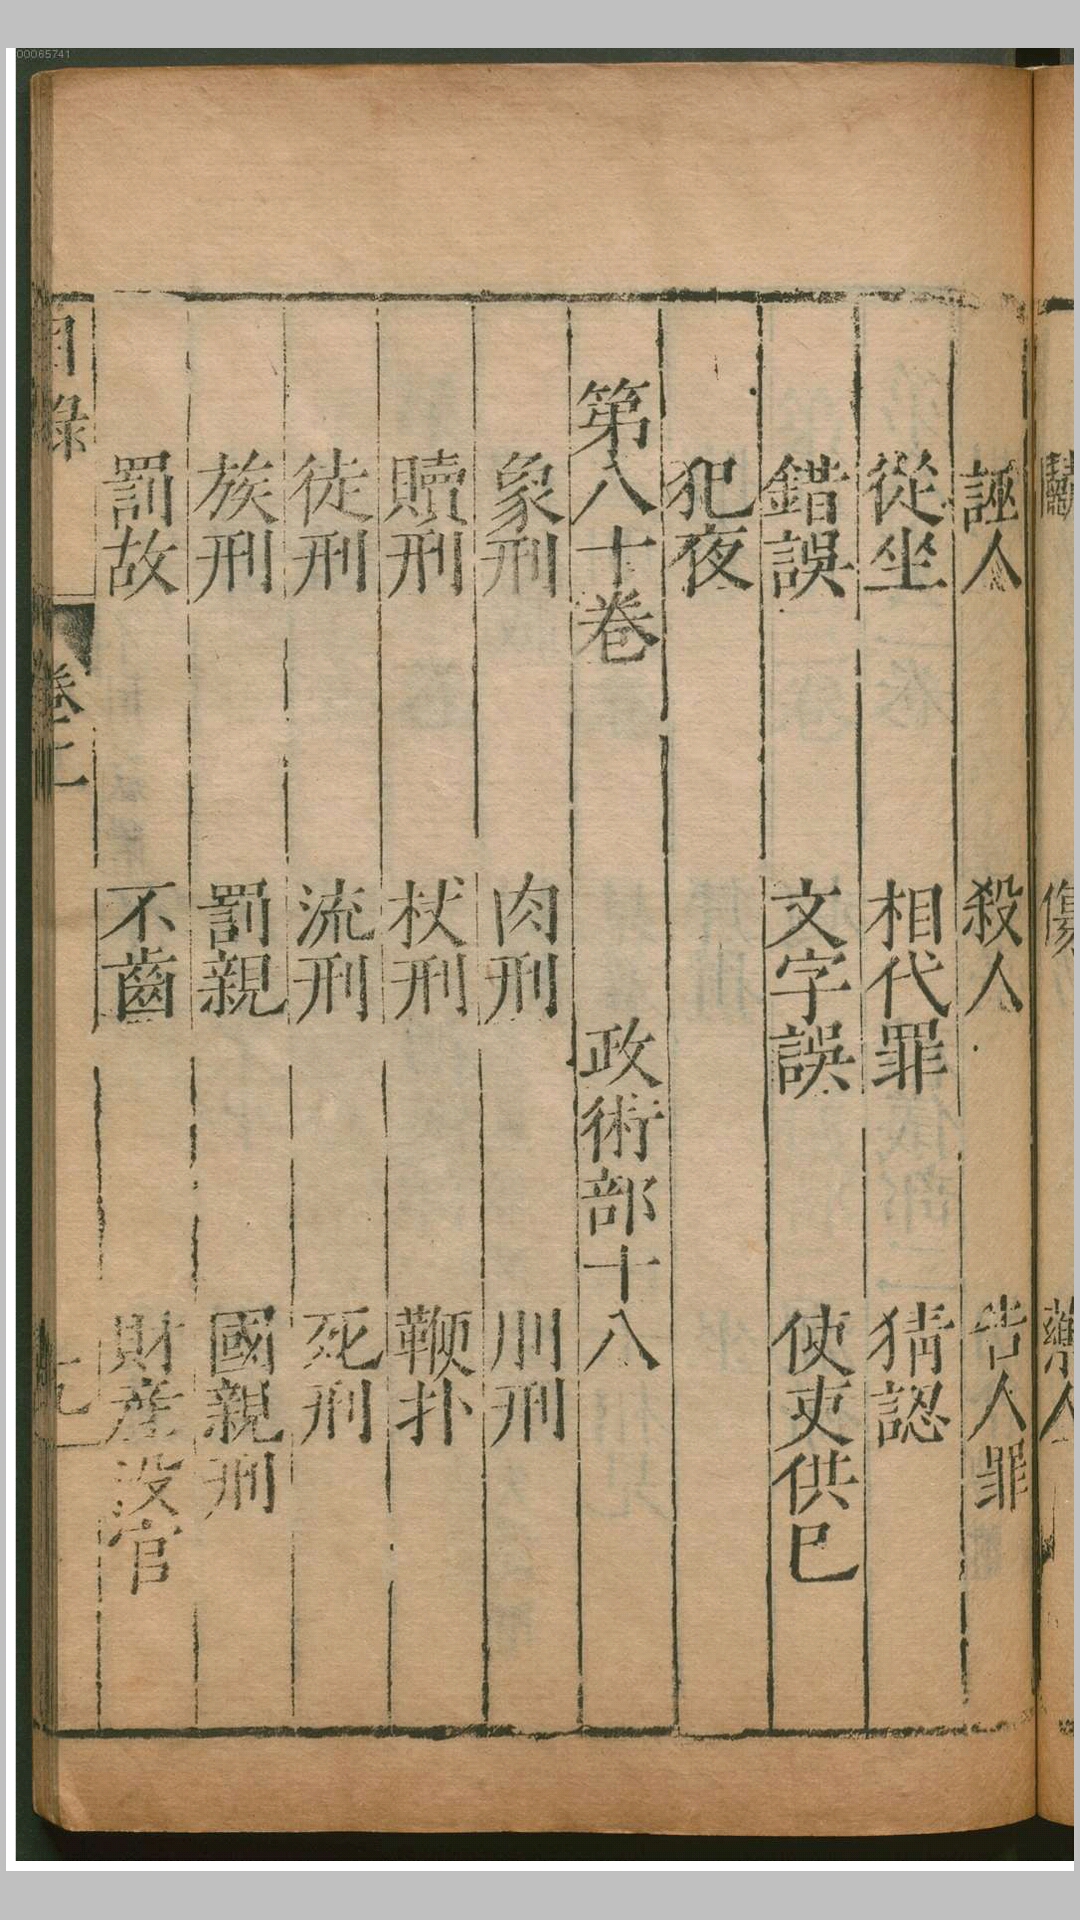 誣人　殺人　告人罪
從坐　相代罪　猜認
錯誤　文字誤　使吏供巳
犯夜
第八十卷　政術部十八
象刑　肉刑　刖刑
贖刑　杖刑　鞭扑
徒刑　流刑　死刑
族刑　罰親　國親刑
罰故　不齒　財產沒官
目錄　卷二
00065741